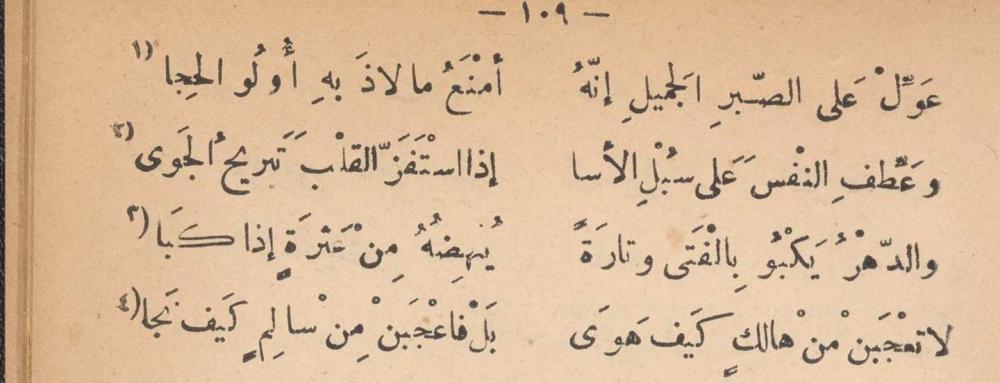 — ١٠٩ —
عَوِّلْ عَلى الصّبرِ الجَميلِ إنّهُ أمْنَعُ ما لاذَ بهِ أُولُو الحِجا (١
وعَطّفِ النّفْسَ عَلى سُبْلِ الأسا إذا اسْتَفَزّ القلْبَ تَبريحُ الجَوى (٢
والدّهْرُ يَكْبُو بِالْفَتَى وتارَةً يُنهِضُهُ مِنْ عَثرَةٍ إذا كَبَا (٣
لا تعْجَبنْ مْنْ هالكٍ كَيفَ هَوَى بَلْ فاعْجَبَنْ مِنْ سْالِمٍ كَيف نَجا (٤